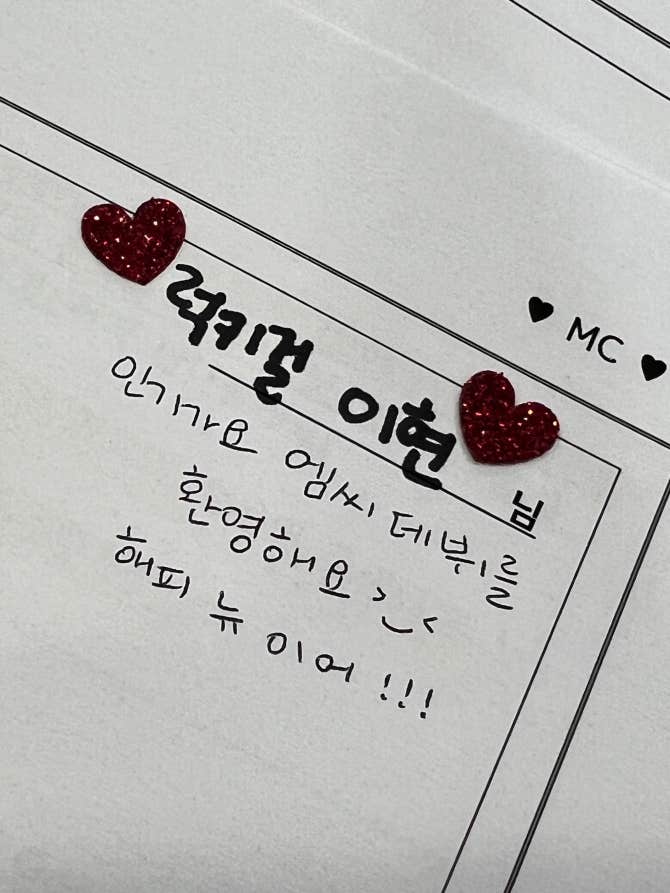 ♥ MC ♥
럭키걸 이현 님
인기가요 엠씨 데뷔를
환영해요 >‿<
해피 뉴 이어 !!!